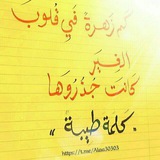 كم زهرة في قلوب
الغير
كانت جذروها
"كلمة طيبة"
https://t.me/Alaa30503